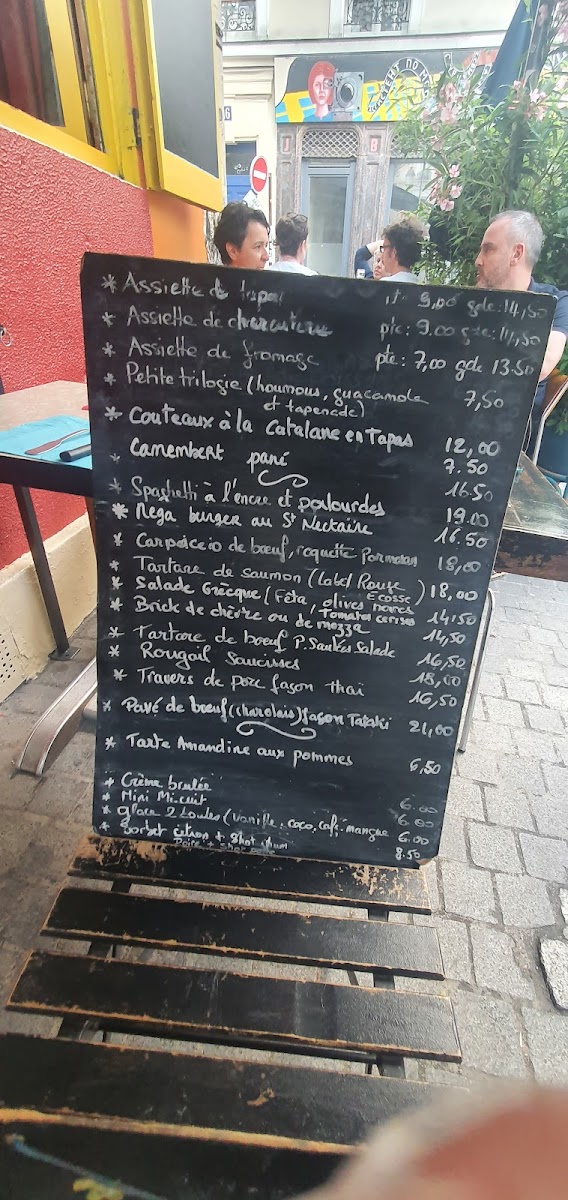 * Assiette de tapas pte: 9,00 gde: 14,50
* Assiette de charcuterie pte: 9.00 gde: 14,50
* Assiette de fromage pte: 7,00 gde 13.50
* Petite trilogie (houmous, guacamole et tapenade) 7,50
* Couteaux à la Catalane en Tapas 12,00
* Camembert pané 7.50
* Spaghetti à l'encre et palourdes 16.50
* Mega burger au St Nectaire 19.00
* Carpaccio de bœuf, roquette Parmesan 16.50
* Tartare de saumon (Label Rouge Ecosse) 18,00
* Salade Grecque (Féta, olives noires, Tomates cerises 18,00
* Brick de chèvre ou de mezza 14,50
* Tartare de bœuf P. Sautées Salade 14,50
* Rougail Saucisses 16,50
* Travers de porc façon thaï 18,00
16,50
* Pavé de bœuf (charolais) façon Tataki 21,00
* Tarte Amandine aux pommes 6,50
* Crème brulée 6.00
* Mini Mi-cuit 6.00
* glace 2 boules (vanille, coco, café, mangue 6.00
* Sorbet citron + Shot rhum 8.50
Poire + shot
6